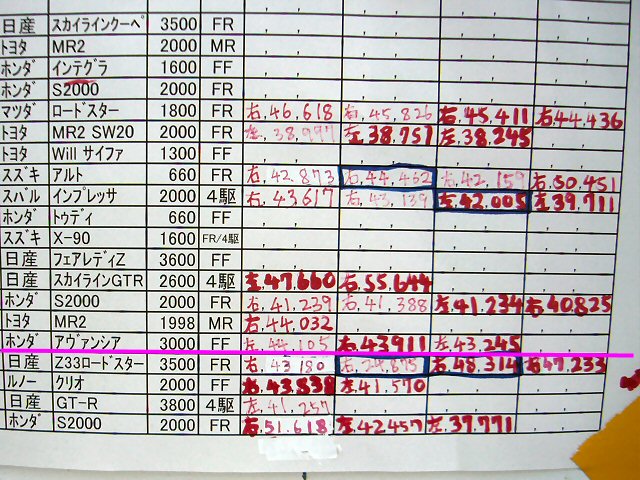 日産 スカイラインクーペ 3500 FR
トヨタ MR2 2000 MR
ホンダ インテグラ 1600 FF
ホンダ S2000 2000 FR
マツダ ロードスター 1800 FR 右.46.618 右.45.826 右.45.411 右44.436
トヨタ MR2 SW20 2000 FR 左.38.997 左.38.757 左.38.245
トヨタ Will サイファ 1300 FF
スズキ アルト 660 FR 右.42.873 右.44.462 右.42.159 右.50.451
スバル インプレッサ 2000 4駆 右.43617 右.43.139 左.42.005 左.39.711
ホンダ トゥディ 660 FF
スズキ X-90 1600 FR/4駆
日産 フェアレディZ 3600 FF
日産 スカイラインGTR 2600 4駆 左.47.660 右.55.644
ホンダ S2000 2000 FR 右.41.239 右.41.388 左41.234 右40.825
トヨタ MR2 1998 MR 右.44.032
ホンダ アヴァンシア 3000 FF 左.44.105 右.43911 左.43.245
日産 Z33ロードスター 3500 FR 右.43180 右.48.314 右47.233
ルノー クリオ 2000 FF 右.43.838 左.41.570
日産 GT-R 3800 4駆 左.41.257
ホンダ S2000 2000 FR 右.51.618 左.42457 左.37.771